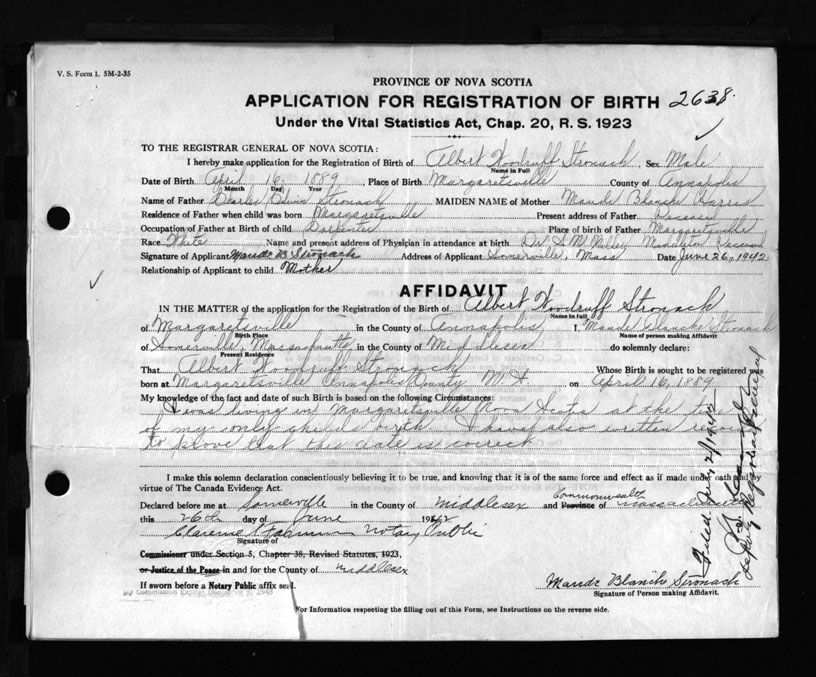 V. S. Form 1. 5M-2-35
PROVINCE OF NOVA SCOTIA
APPLICATION FOR REGISTRATION OF BIRTH 2638.
Under the Vital Statistics Act, Chap. 20, R. S. 1923
TO THE REGISTRAR GENERAL OF NOVA SCOTIA:
I hereby make application for the Registration of Birth of Albert Woodruff Stronach Sex Male
Name in Full
Date of Birth April 16 1889 Place of Birth Margaretsville County of Annapolis
Month Day Year
Name of Father Edwin Stronach MAIDEN NAME of Mother Maude Blanche
Residence of Father when child was born Margaretsville Present address of Father Deceased
Occupation of Father at Birth of child Carpenter Place of Birth of Father Margaretsville
Race White Name and present address of Physician in attendance at birth Dr. Deceased
Signature of Applicant Maude B Stronach Address of Applicant Somerville, Mass Date June 26, 1942
Relationship of Applicant to child Mother
AFFIDAVIT
IN THE MATTER of the application for the Registration of the Birth of Albert Woodruff Stronach
Name in full
of Margaretsville in the County of Annapolis I, Maude Blanche Stronach
Birth Place Name of person making Affidavit
of Somerville, Massachusetts in the County of Middlesex do solemnly declare:
Present Residence
That Albert Woodruff Stronach Whose Birth is sought to be registered was
born at Margaretsville Annapolis County N.S. on April 16, 1889
My knowledge of the fact and date of such Birth is based on the following Circumstances:
I was living in Margaretsville Nova Scotia at the time
of my only child's birth. I have also written
to prove that this date is correct
I make this solemn declaration conscientiously believing it to be true, and knowing that it is of the same force and effect as if made under oath and by
virtue of The Canada Evidence Act.
Commonwealth
Declared before me at Somerville in the County of Middlesex and Province of Massachusetts
this 26th day of June 1942
Clarence Notary Public
Signature of
Commissioner under Section 5, Chapter 38, Revised Statutes, 1923,
or Justice of the Peace in and for the County of Middlesex
If sworn before a Notary Public affix seal.
Maude Blanche Stronach
Signature of Person making Affidavit.
For Information respecting the filling out of this Form, see Instructions on the reverse side.
Deputy Registrar General